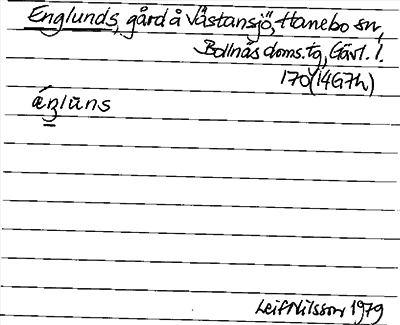 Englunds, gård å Västansjö, Hanebo sn,
Bollnäs doms.tg, Gävl. l.
170 (14G7h)
áŋlūns
Leif Nilsson 1979